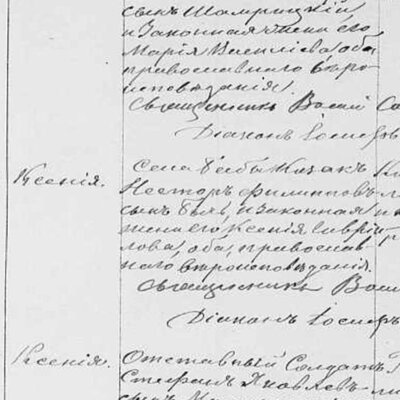 сынъ Шамрицкій
и Законная жена его
Марія Василіева, оба
православнаго веро
исповѣданія.
Священникъ Васил
Діаконъ Іосифъ
Ксенія.
Села Козакъ
Несторъ Филиповъ
сынъ и законная
жена его Ксенія Гаврі
лова, оба, православ
наго вѣроисповѣданія.
Священникъ Васи
Діаконъ Іосифъ
Ксенія.
Отставный Солдатъ
Стефанъ Яковлевъ
сынъ